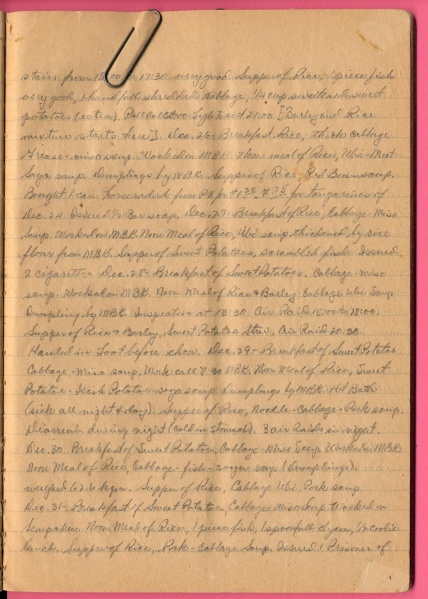 stairs, from 15:00 to 17:30 very good. Supper of Rice, 1 piece fish
very good, 1 handfull shredded cabbage, 1/4 cup sweet
potatoes (extra). Roll Call 20:00. Lights out 21:00 [Barley and Rice
mixture starts here]. Dec. 26- Breakfast Rice, thick cabbage
Greens - miso soup. Worked on M.B.K. Noon meal of Rice, Ubi - Meat -
Soya soup. Dumplings by M.B.K. Supper of Rice, Red Bean soup.
Bought 1 can horseradish for tangerines of
Dec. 24. Issued 1/2 Bar soap. Dec. 27- Breakfast of Rice, Cabbage Miso
Soup. Worked on M.B.K. Noon Meal of Rice, Ubi soup thickened by rice
flour from M.B.K. Supper of Sweet Potatoes, scrambled fish. Issued
2 cigarettes. Dec. 28- Breakfast of Sweet Potatoes. Cabbage - miso
soup. Worked on M.B.K. Noon Meal of Rice & Barley Cabbage Ubi Soup
Dumplings by M.B.K. Inspection at 12:30. Air Raid 15:00 to 18:00.
Supper of Rice & Barley, Sweet Potatoe Stew, Air Raid 20:30.
Hauled in Soot before chow. Dec. 29- Breakfast of Sweet Potatoe
Cabbage - Miso soup. Work call 7:30 M.B.K. Noon Meal of Rice, Sweet
Potatoe - Irish Potatoe - soya soup. Dumplings by M.B.K. Hot Bath
(sick all night & day). Supper of Rice, Noodle - Cabbage - Pork soup.
Diarrea during night (cold on stomach). 3 air Raids in night.
Dec. 30. Breakfast of Sweet Potatoes, Cabbage - Miso Soup. Worked in M.B.K.
Noon Meal of Rice, Cabbage - fish - soya soup (Dumplings).
weighed 62.6 kgm. Supper of Rice, Cabbage - Ubi Pork soup.
Dec. 31- Breakfast of Sweet Potatoes, Cabbage Miso Soup. Worked in
Noon Meal of Rice, 1 piece fish, 1 spoonfull
Supper of Rice, Pork - Cabbage Soup. Issued 1 Prisoner of